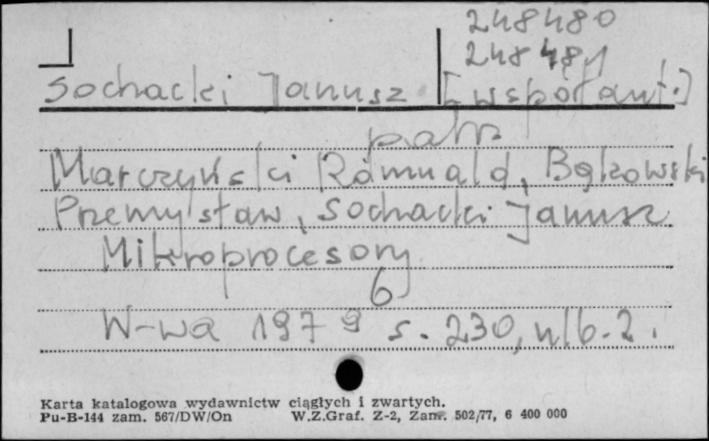 248480
248481
Sochacki Janusz [współaut.]
patrz
Marczyński Romuald, Bąkowski
Przemysław, Sochacki Janusz
Mikroprocesory
6
W-wa 1979 s. 230, nlb. 2.
Karta katalogowa wydawnictw ciągłych i zwartych.
Pu-B-144 zam. 567/DW/On W.Z.Graf. Z-2, Zam. 502/77, 6 400 000